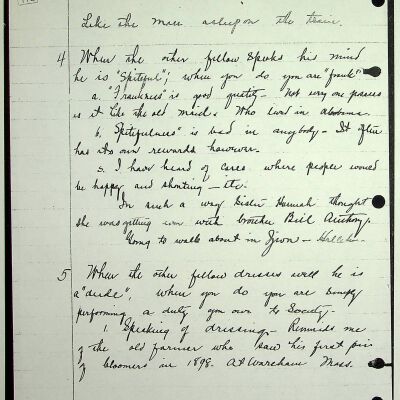 Like the man asleep on the train.
4 When the other fellow speaks his mind
he is "Spiteful"; when you do you are "frank"
a. "Frankness" is good quality - Not every one possess
is it like the old maid. Who lived in
b. Spitefulness" is bad in anybody - It often
has its own rewards however.
5. I have heard of cases where people would
be happy and shouting - etc.
In such a way Sister Hannah thought
she was getting even with brother Bill Anthony.
Going to walk about in Zion -
5 When the other fellow dresses well he is
a "dude", when you do you are simply
performing a duty you owe to Society.
1. Speaking of dressing - Reminds me
of the old farmer who saw his first pair
of bloomers in 1898. At Wareham Mass.